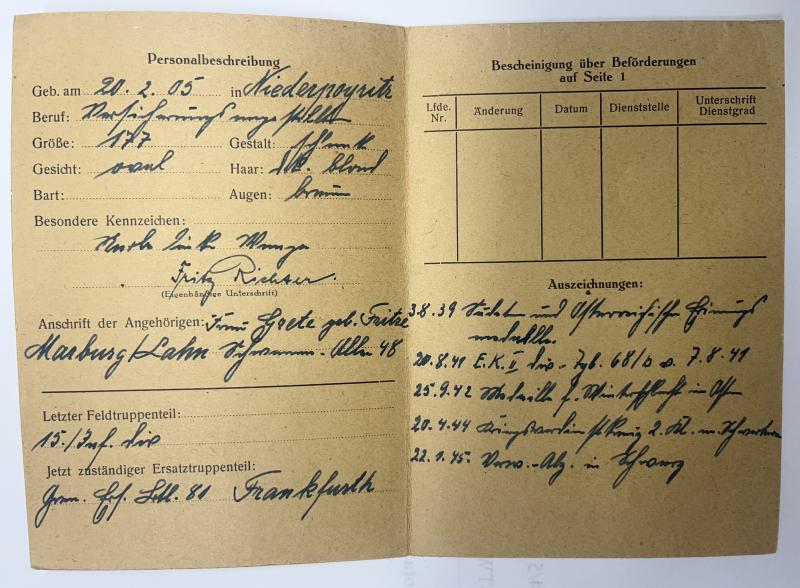 Personalbeschreibung
Geb. am 20. 2. 05 in Niederpoyritz
Beruf: Versicherungsangestellter
Größe: 177 Gestalt: schlank
Gesicht: oval Haar: dk. blond
Bart: Augen: braun
Besondere Kennzeichen:
Narbe linke Wange
Fritz Richter
(Eigenhändige Unterschrift)
Anschrift der Angehörigen: Frau Grete geb. Fritze
Marburg/Lahn Schwanen-Allee 48
Letzter Feldtruppenteil:
15./Inf. Div
Jetzt zuständiger Ersatztruppenteil:
Gren. Ers. Btl. 81 Frankfurth
Bescheinigung über Beförderungen
auf Seite 1
Lfde. Nr. Änderung Datum Dienststelle Unterschrift Dienstgrad
Auszeichnungen:
3.8.39 Sudet und Österreichische Einungs
medaille.
20.8.41 E.K. II Div. Tgb. 68/ v. 7.8.41
25.9.42 Medaille f. Winterschlacht im Osten
20.4.44 Kriegsverdienstkreuz 2. Kl. m. Schwertern
22.1.45. Verw.-Abz. in Schwarz